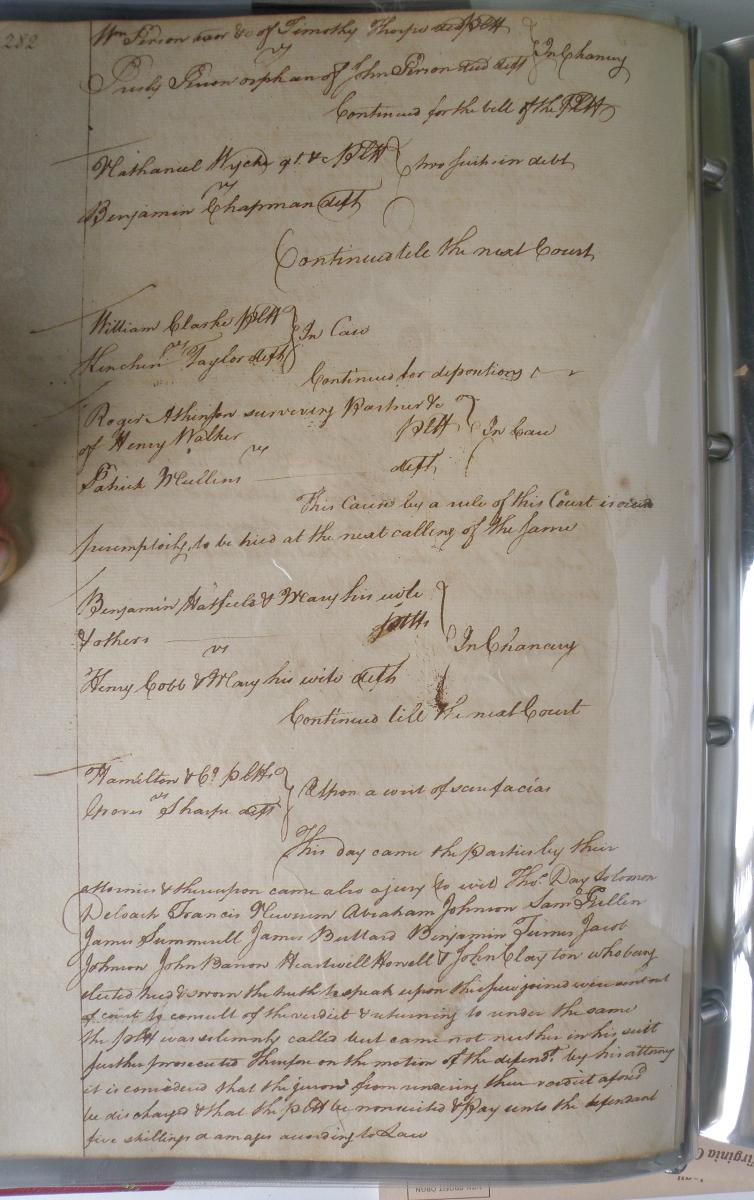 282
Wm Person exor &c of Timothy Thorpe decd Pltf
vs
} In Chancery
Presly Person orphan of John Person decd deft
Continued for the bill of the Pltf
Nathaniel Wyche qt & Pltf
vs
} two suits in debt
Benjamin Chapman deft
Continued till the next Court
William Clarke Pltf
vs
} In Case
Henchen Taylor deft
Continued for depositions
Roger Atkinson surviving Partner &c
of Henry Walker Pltf
vs
} In Case
Patrick McCullins deft
This Cause by a rule of this Court is
peremptorily to be tried at the next calling of the same
Benjamin Hatfield & Mary his wife
& others pltfs
vs
} In Chancery
Henry Cobb & Mary his wife defts
Continued till the next Court
Hamilton & Co pltfs
vs
} Upon a writ of scire facias
Groves Sharpe deft
This day came the parties by their
attornies & thereupon came also a jury to wit Thos Day Solomon
Deloach Francis Newsum Abraham Johnson Saml
James Summerell James Buttard Benjamin Turner Jacob
Johnson John Barron Heartwell Howell & John Clayton who being
elected tried & sworn the truth to speak upon the issue joined were sent out
of court to consult of the verdict & returning to render the same
the pltf was solemnly called but came not neither is his suit
further prosecuted Therefore on the motion of the defendt by his attorney
it is considered that the jurors from rendering their verdict aforesd
be discharged & that the pltf be nonsuited & Pay unto the defendant
five shillings damages according to Law
Virginia